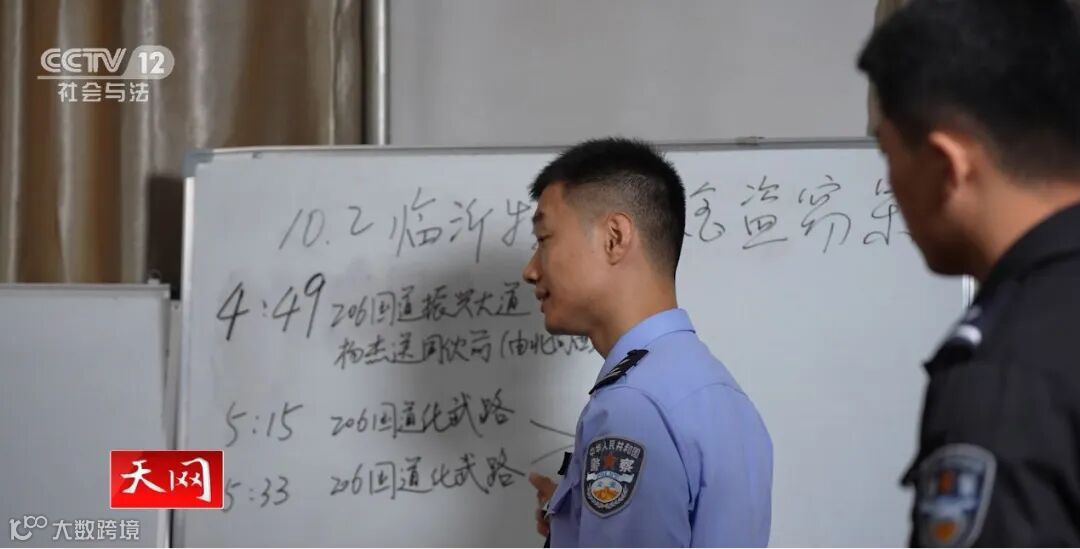 CCTV 12
社会与法
10.2临沂特 金盗窃案
4:49 206国道振兴大道
杨杰送同伙前(由北向
5:15 206国道化武路
5:33 206国道化武路
天网
中华人民共和国
警察
大数跨境